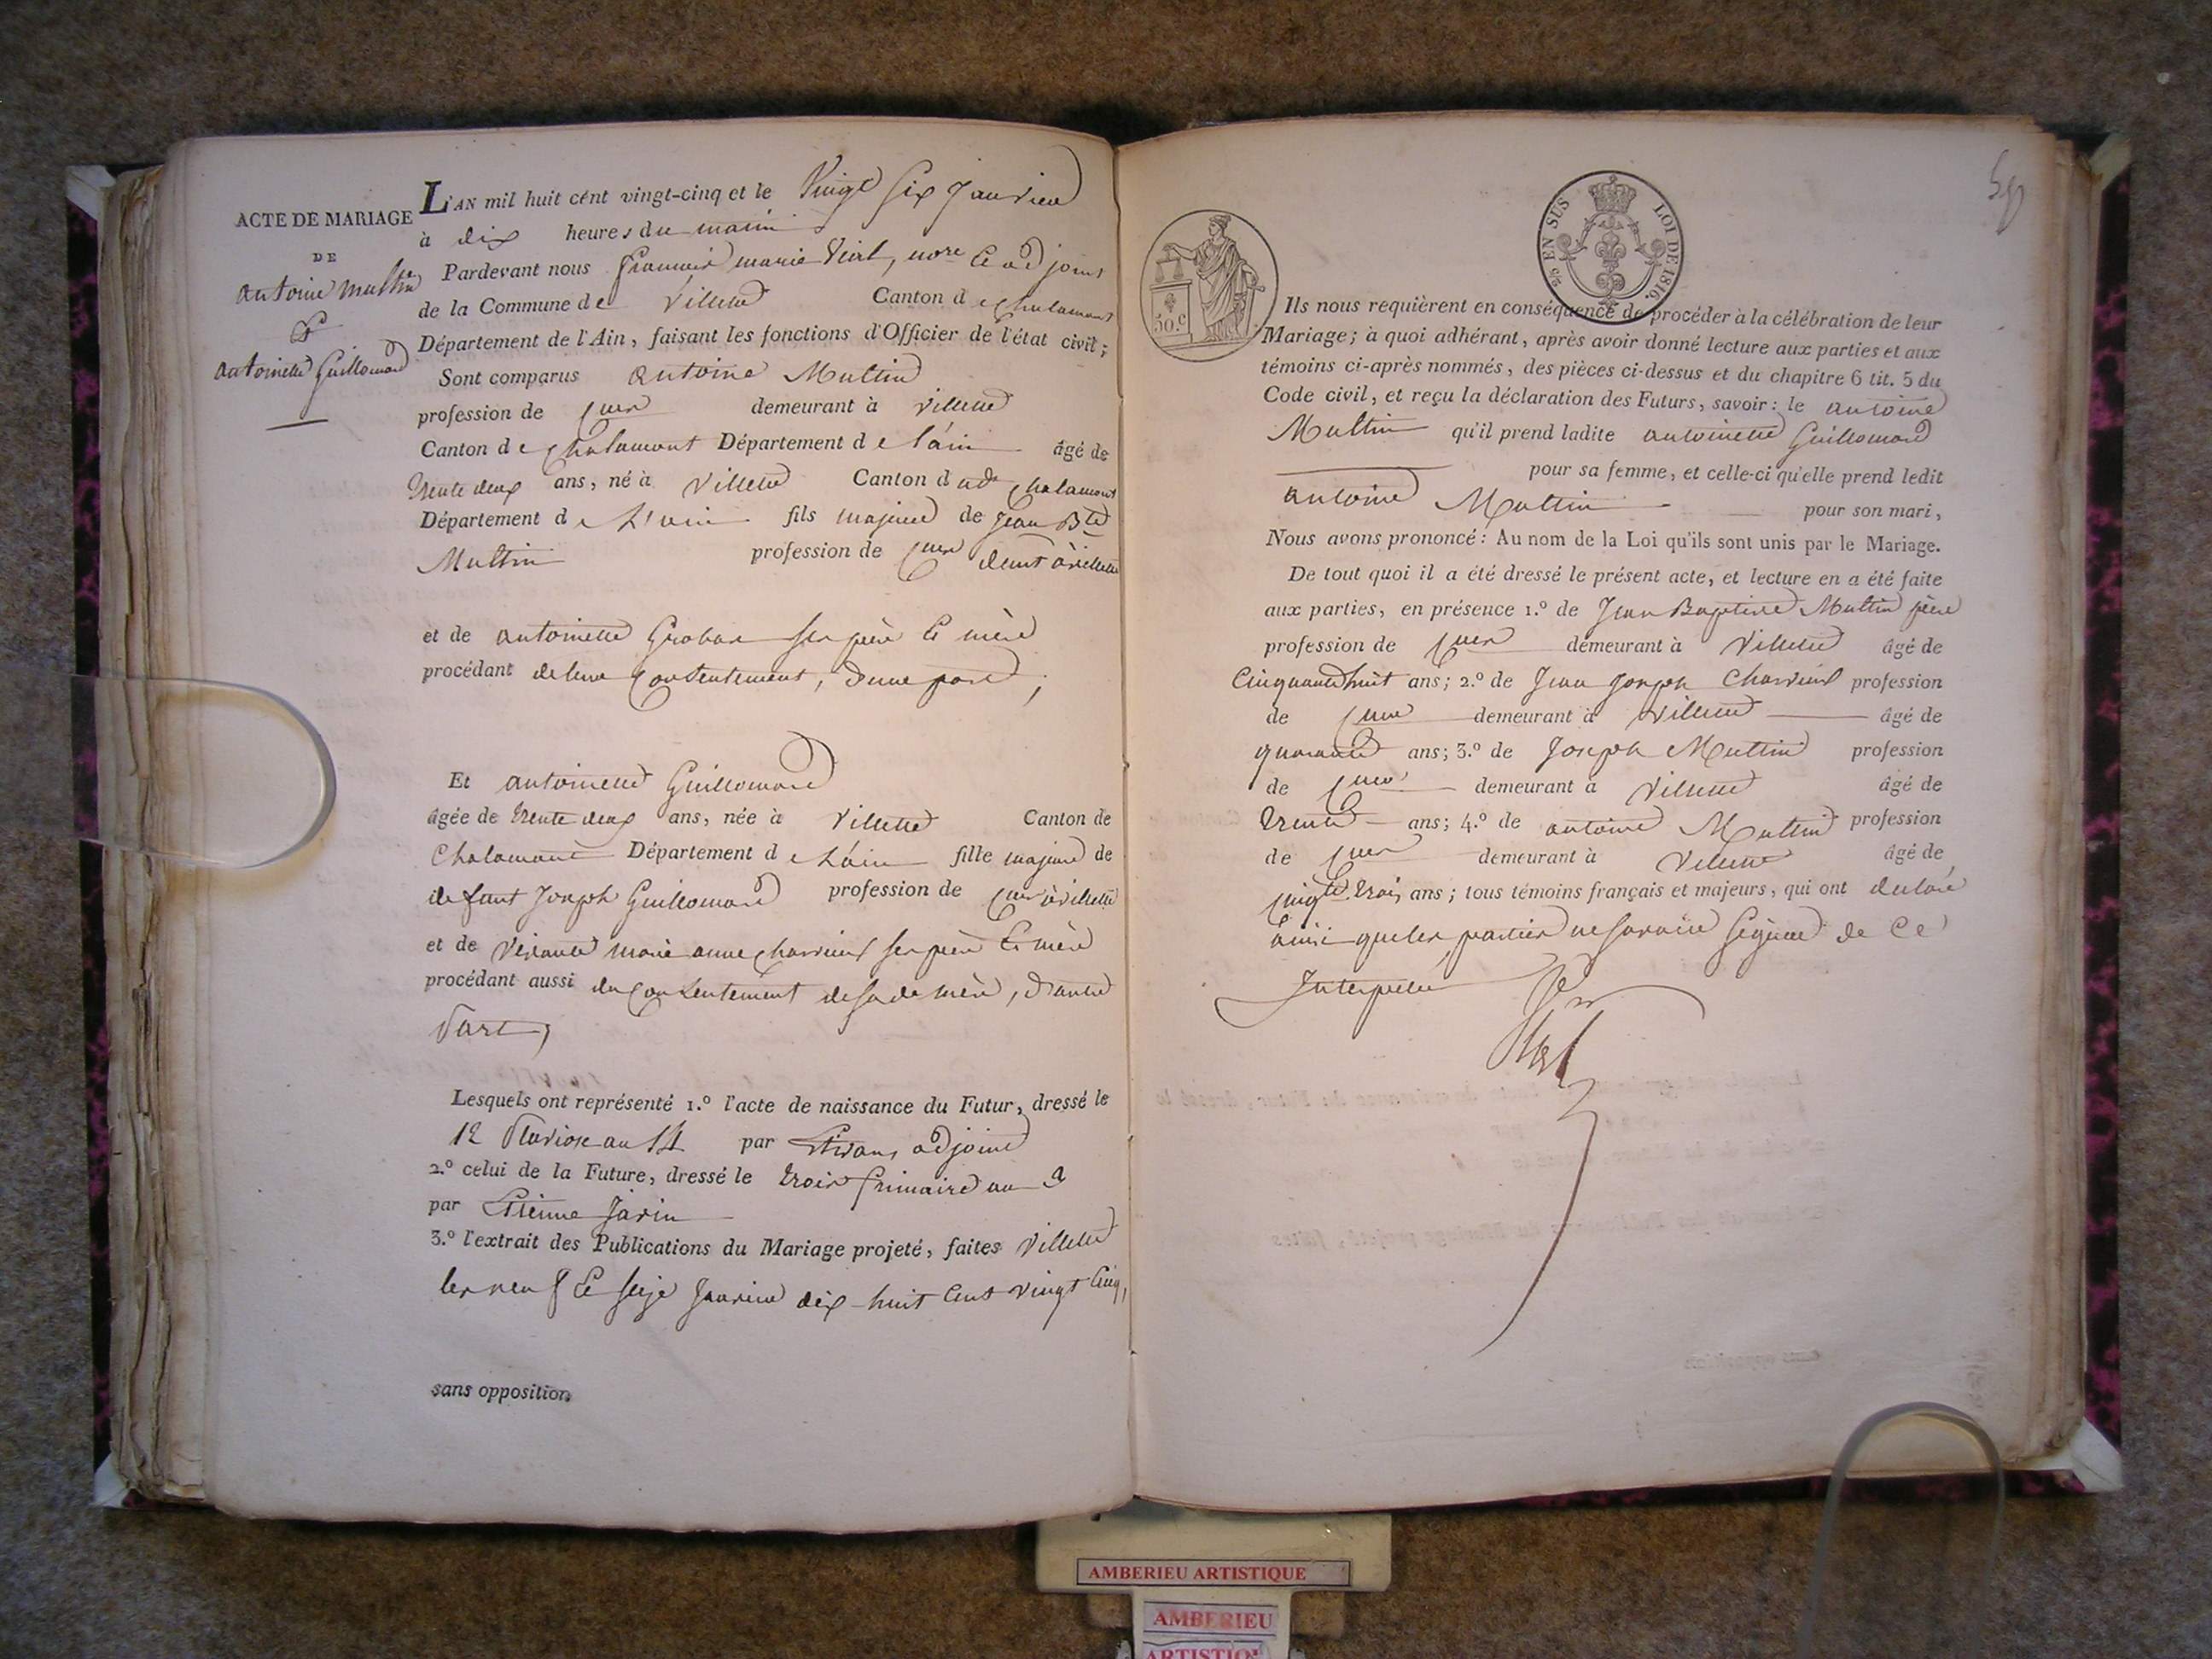 ACTE DE MARIAGE
DE
antoine Multin
&
antoinette Guillomard
L'AN mil huit cent vingt-cinq et le Vingt six Janvier
à dix heures du matin
Pardevant nous françois marie Vial, nore et adjoint
de la Commune de Villette Canton de Chalamont
Département de l'Ain, faisant les fonctions d'Officier de l'état civil;
Sont comparus antoine Multin
profession de demeurant à Villette
Canton de Chalamont Département de l'ain âgé de
trente deux ans, né à Villette Canton dud. Chalamont
Département de L'ain fils majeur de Jean Bte
Multin profession de demt à villette
et de antoinette Grobas ses père et mère
procédant de leur Consentement, d'une part;
Et antoinette Guillomard
âgée de trente deux ans, née à Villette Canton de
Chalamont Département de L'ain fille majeure de
defunt Joseph Guillomard profession de à villette
et de vivante marie anne Charvieux ses père et mère
procédant aussi du Consentement de sade mère, d'autre
part,
Lesquels ont représenté 1.º l'acte de naissance du Futur, dressé le
12 par adjoint
2.º celui de la Future, dressé le trois frimaire an 2
par Etienne Jarin
3.º l'extrait des Publications du Mariage projeté, faites Villette
les neuf et seize Janvier dix-huit cent vingt cinq,
sans opposition
50.c
2/5 EN SUS LOI DE 1816.
Ils nous requièrent en conséquence de procéder à la célébration de leur
Mariage; à quoi adhérant, après avoir donné lecture aux parties et aux
témoins ci-après nommés, des pièces ci-dessus et du chapitre 6 tit. 5 du
Code civil, et reçu la déclaration des Futurs, savoir: le antoine
Multin qu'il prend ladite antoinette Guillomard
pour sa femme, et celle-ci qu'elle prend ledit
antoine Multin pour son mari,
Nous avons prononcé: Au nom de la Loi qu'ils sont unis par le Mariage.
De tout quoi il a été dressé le présent acte, et lecture en a été faite
aux parties, en présence 1.º de Jean Baptiste Multin père
profession de demeurant à Villette âgé de
Cinquante huit ans; 2.º de Jean Joseph Charvieux profession
de demeurant à Villette âgé de
quarante ans; 3.º de Joseph Multin profession
de demeurant à Villette âgé de
trente ans; 4.º de antoine Multin profession
de demeurant à Villette âgé de
cinqte trois ans; tous témoins français et majeurs, qui ont declaré
ainsi que les parties ne savoir signer de ce
Interpellés
Vial
AMBERIEU ARTISTIQUE
AMBERIEU
ARTISTIQUE